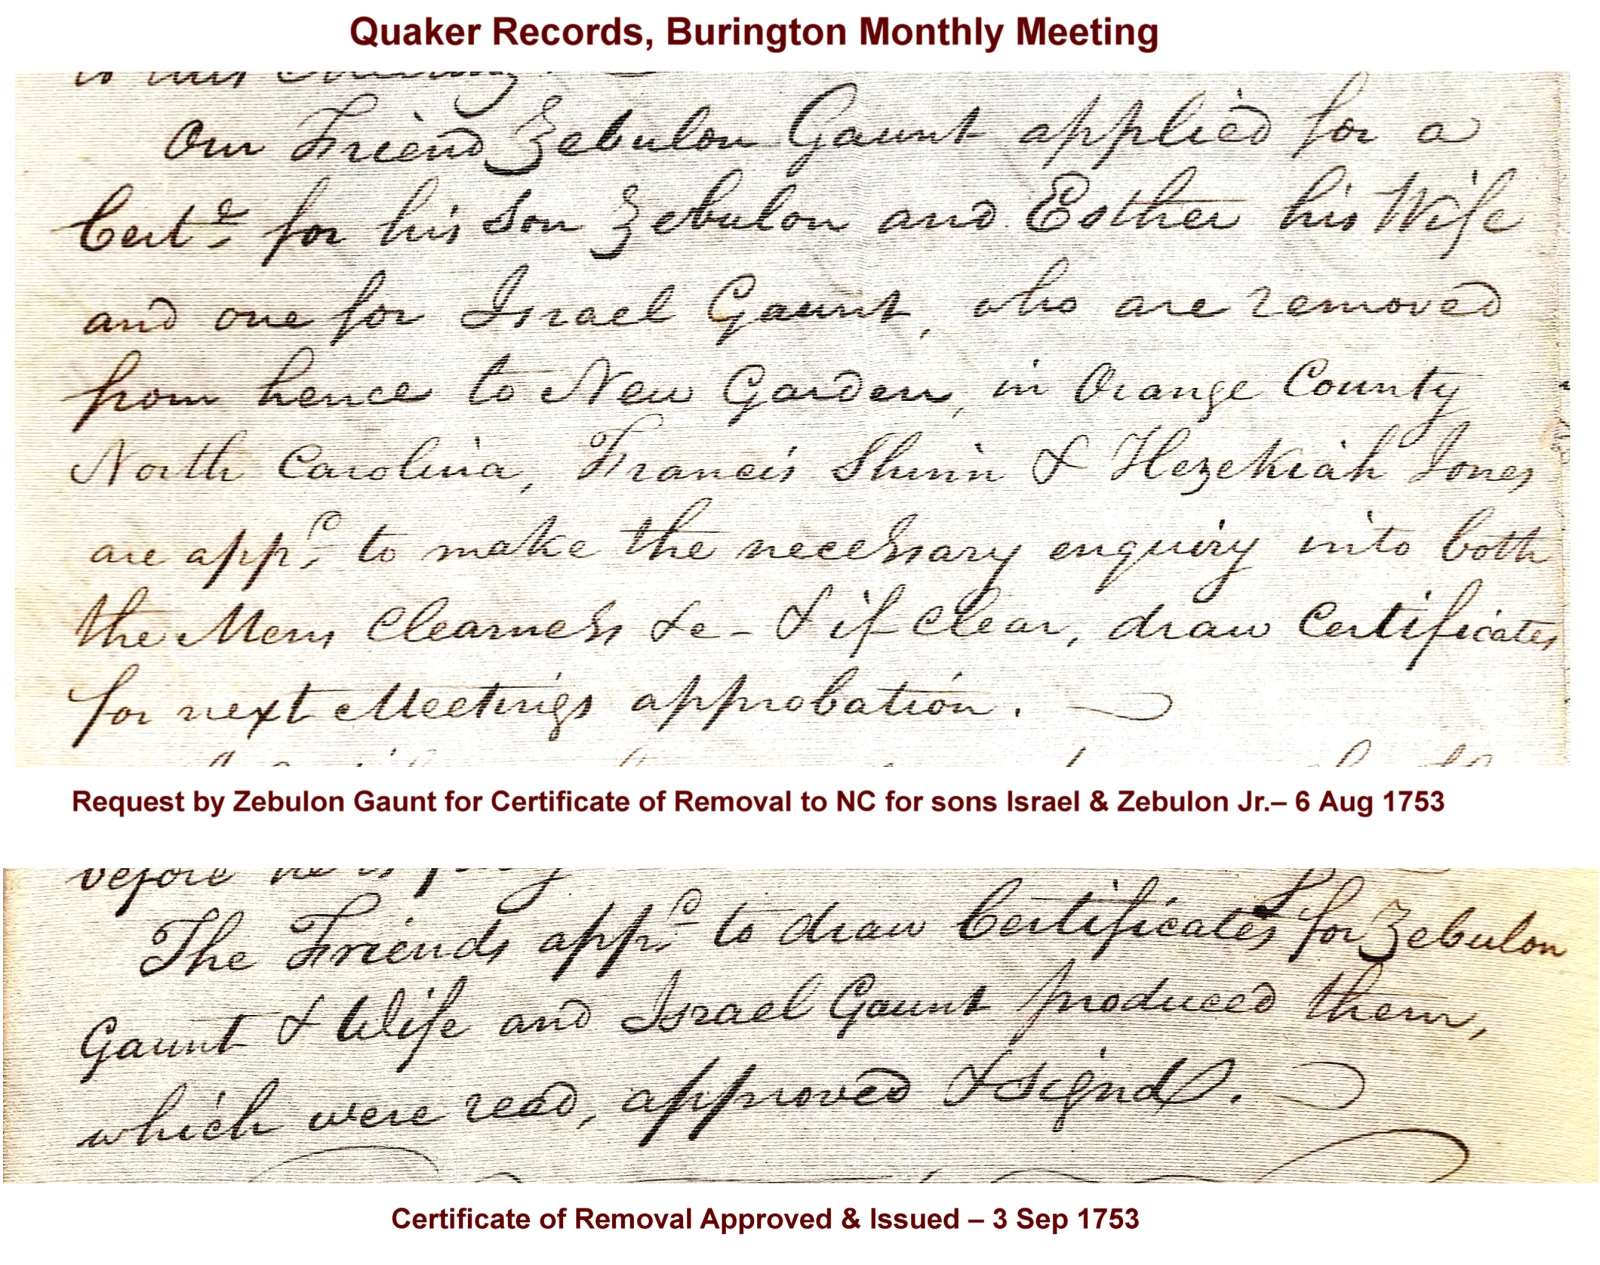 Quaker Records, Burington Monthly Meeting
to this Meeting.
Our Friend Zebulon Gaunt applied for a
Certe. for his Son Zebulon and Esther his Wife
and one for Israel Gaunt, who are removed
from hence to New Garden, in Orange County
North Carolina, Francis Shinn & Hezekiah Jones
are appd. to make the necessary enquiry into both
the Mens Clearness &c - & if Clear, draw Certificates
for next Meetings approbation.
Request by Zebulon Gaunt for Certificate of Removal to NC for sons Israel & Zebulon Jr.– 6 Aug 1753
before he is
The Friends appd. to draw Certificates for Zebulon
Gaunt & Wife and Israel Gaunt produced them,
which were read, approved & signd.
Certificate of Removal Approved & Issued – 3 Sep 1753